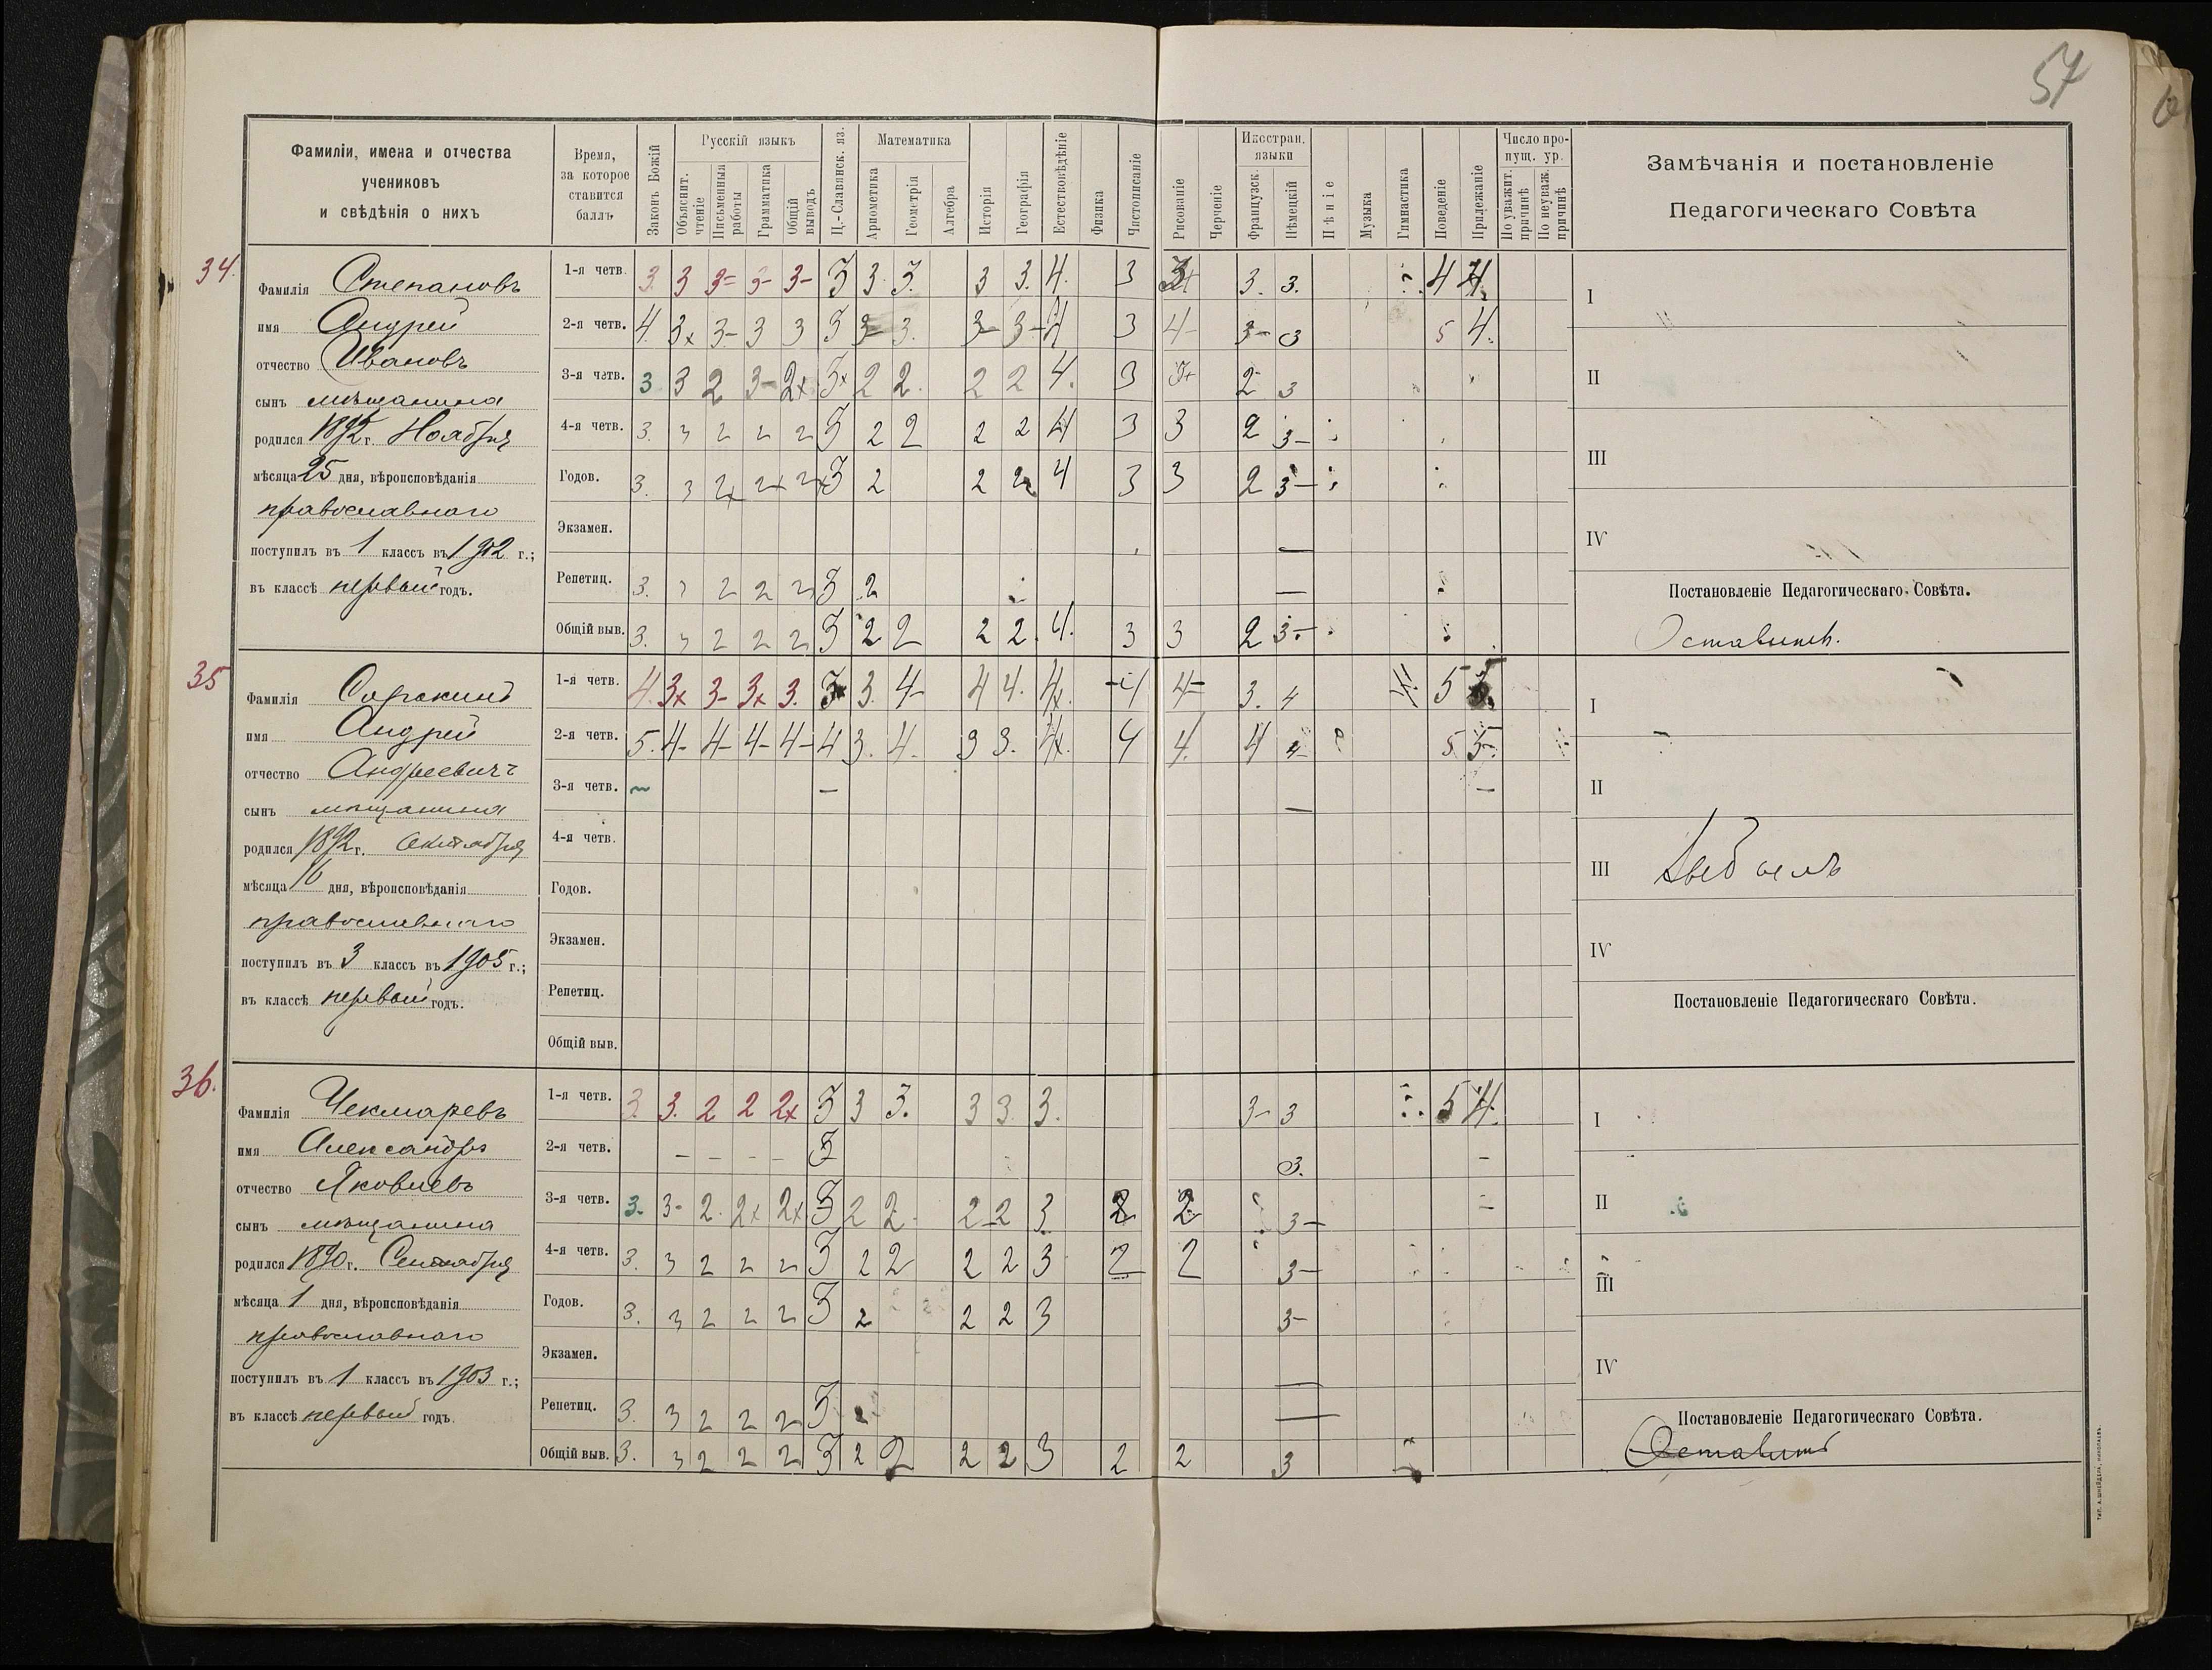 57
Фамиліи, имена и отчества
учениковъ
и свѣдѣнія о нихъ
Время,
за которое
ставится
баллъ
Законъ Божій
Русскій языкъ
Объяснит. чтеніе
Письменныя работы
Грамматика
Общій выводъ
Ц.-Славянск. яз.
Математика
Ариѳметика
Геометрія
Алгебра
Исторія
Географія
Естествовѣдѣніе
Физика
Чистописаніе
Рисованіе
Черченіе
Иностран. языки
Французск.
Нѣмецкій
Пѣніе
Музыка
Гимнастика
Поведеніе
Прилежаніе
Число про-
пущ. ур.
По уважит. причинѣ
По неуваж. причинѣ
Замѣчанія и постановленіе
Педагогическаго Совѣта
34.
Фамилія Степановъ
имя Андрей
отчество Ивановъ
сынъ мѣщанина
родился г. Ноября
мѣсяца 25 дня, вѣроисповѣданія
православнаго
поступилъ въ 1 классъ въ 1902 г.;
въ классѣ первый годъ.
1-я четв. 3. 3 3= 3- 3- 3 3. 3. 3 3. 4. 3 3. 3. 4 4.
2-я четв. 4. 3x 3- 3 3 3 3 3. 3- 3- 4 3 4- 3- 3 5 4.
3-я четв. 3 3 2 3- 2x 3x 2 2. 2 2 4. 3 3+ 2 3
4-я четв. 3. 3 2 2 2 3 2 2 2 2 4 3 3 2 3-
Годов. 3. 3 2x 2x 2x 3 2 2 2 4 3 3 2 3-
Экзамен. —
Репетиц. 3. 3 2 2 2 3 2 —
Общій выв. 3. 3 2 2 2 3 2 2 2 2. 4. 3 3 2 3-
I
II
III
IV
Постановленіе Педагогическаго Совѣта.
Оставить.
35
Фамилія
имя Андрей
отчество Андреевичъ
сынъ мѣщанина
родился 1892 г. Октября
мѣсяца 16 дня, вѣроисповѣданія
православнаго
поступилъ въ 3 классъ въ 1905 г.;
въ классѣ первый годъ.
1-я четв. 4. 3x 3- 3x 3. 3 3. 4- 4 4. 4. -4 4= 3. 4 5
2-я четв. 5. 4- 4- 4- 4- 4 3. 4. 3 3. 4. 4 4. 4 4 5 5-
3-я четв. — — — —
4-я четв.
Годов.
Экзамен.
Репетиц.
Общій выв.
I
II
III Выбылъ
IV
Постановленіе Педагогическаго Совѣта.
36.
Фамилія Чекмаревъ
имя Александръ
отчество Яковлевъ
сынъ мѣщанина
родился 1890 г. Сентября
мѣсяца 1 дня, вѣроисповѣданія
православнаго
поступилъ въ 1 классъ въ 1903 г.;
въ классѣ первый годъ.
1-я четв. 3. 3. 2 2 2x 3 3 3. 3 3. 3. 3- 3 5 4.
2-я четв. - - - - 3 3. -
3-я четв. 3. 3- 2. 2x 2x 3 2 2. 2 2 3. 2 2 3- -
4-я четв. 3. 3 2 2 2 3 2 2 2 2 3 2 2 3-
Годов. 3. 3 2 2 2 3 2 2 2 3 3-
Экзамен. —
Репетиц. 3. 3 2 2 2 3 —
Общій выв. 3. 3 2 2 2 3 2 2 2 2 3 2 2 3
I
II
III
IV
Постановленіе Педагогическаго Совѣта.
Оставить